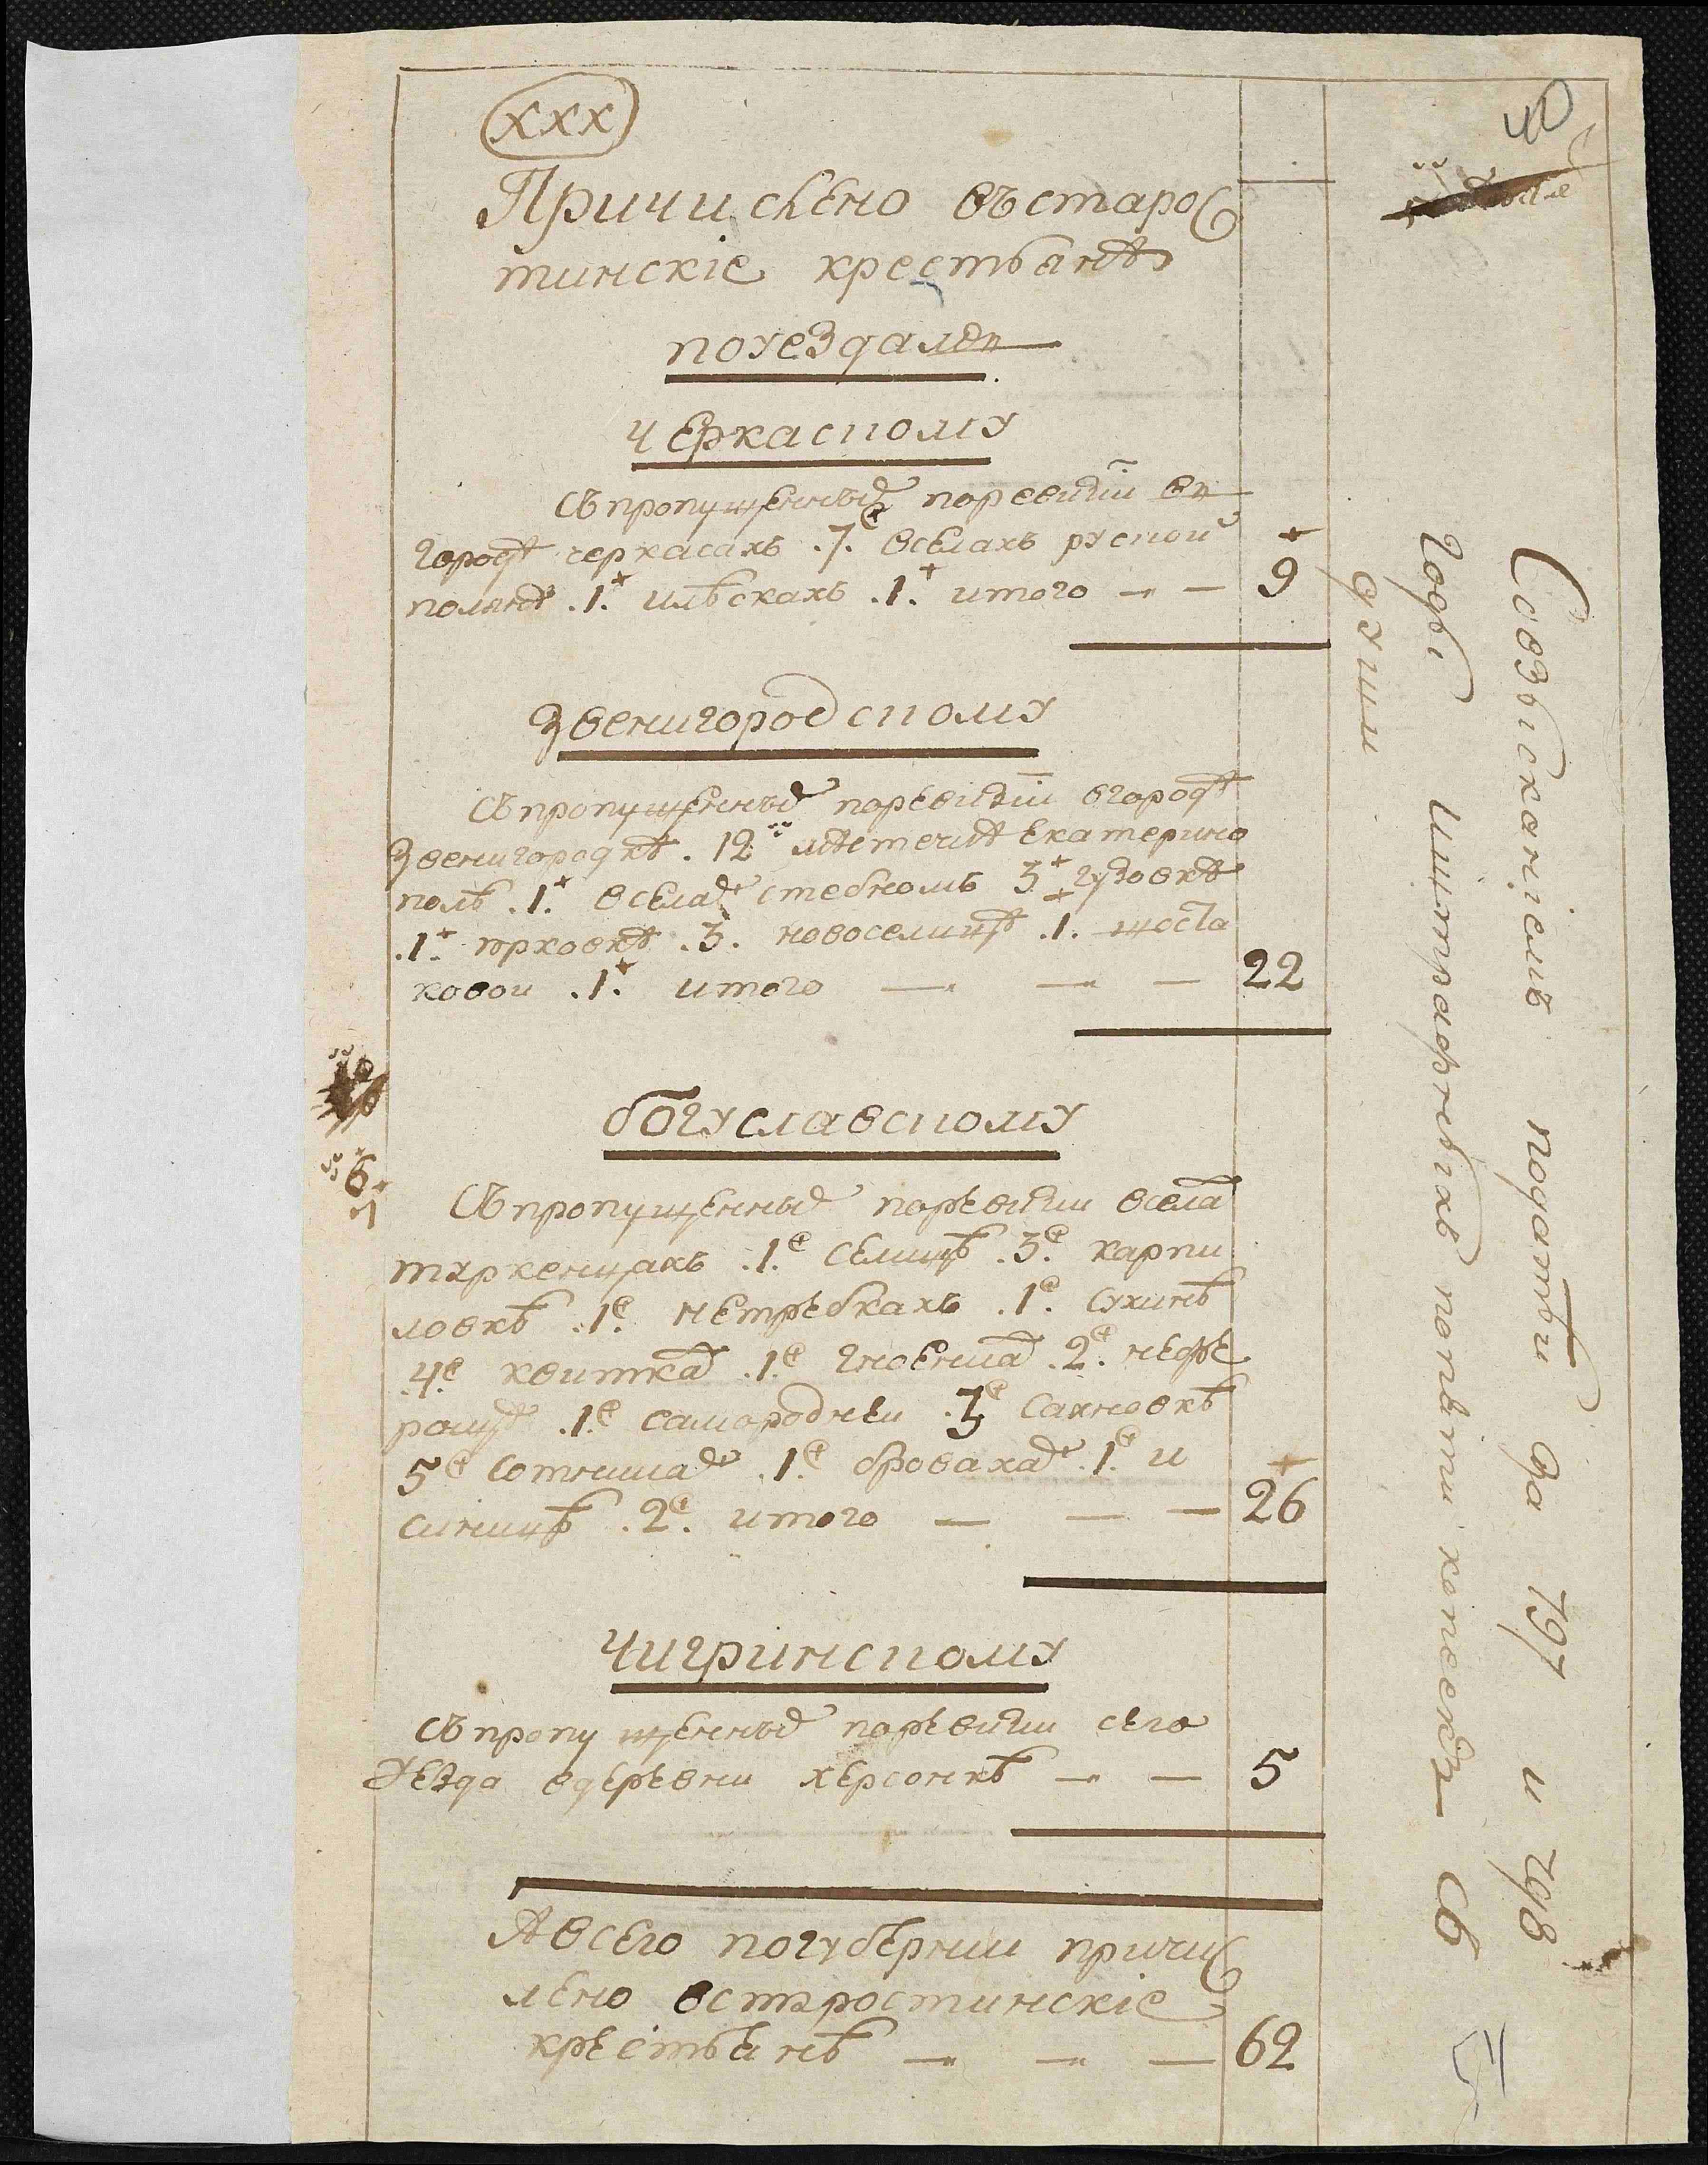 XXX
Причислено въ старос
тинскіе крестьянѣ
поуездамъ
Черкаскому
Съ пропущенныхъ поревизіи въ
городѣ черкасахъ .7. вселахъ руской
полянѣ .1. ильскахъ .1. итого — — 9
Звенигородскому
Съ пропущенныхъ поревизіи вгородѣ
Звенигородкѣ . 12 мѣстечкѣ Екатерино
полѣ .1. вселахъ стебномъ 3 гузовкѣ
.1. юрковкѣ .3. новоселицѣ .1. щоста
ковой .1. итого — — — 22
богуславскому
Съ пропущенныхъ поревизіи вселах
туркенцахъ .1. Селищѣ .3. карпи
ловкѣ .1. нетребкахъ .1. Сухинѣ
.4. квитках .1. Гноенках .2. нефе
рощѣ .1. самородней .3. Сахновкѣ
5 сотникахъ .1. бровахахъ .1. и
синицѣ .2. итого — — — 26
Чигринскому
Съ пропущенныхъ поревизіи сего
уезда вдеревни херсонкѣ — — 5
Авсего погубернии причис
лено встаростинскіе
крестьянѣ — — — 62
40
Совзысканіемъ податей за 797 и 798
годы иштрафныхъ попяти копеекъ съ
души
6